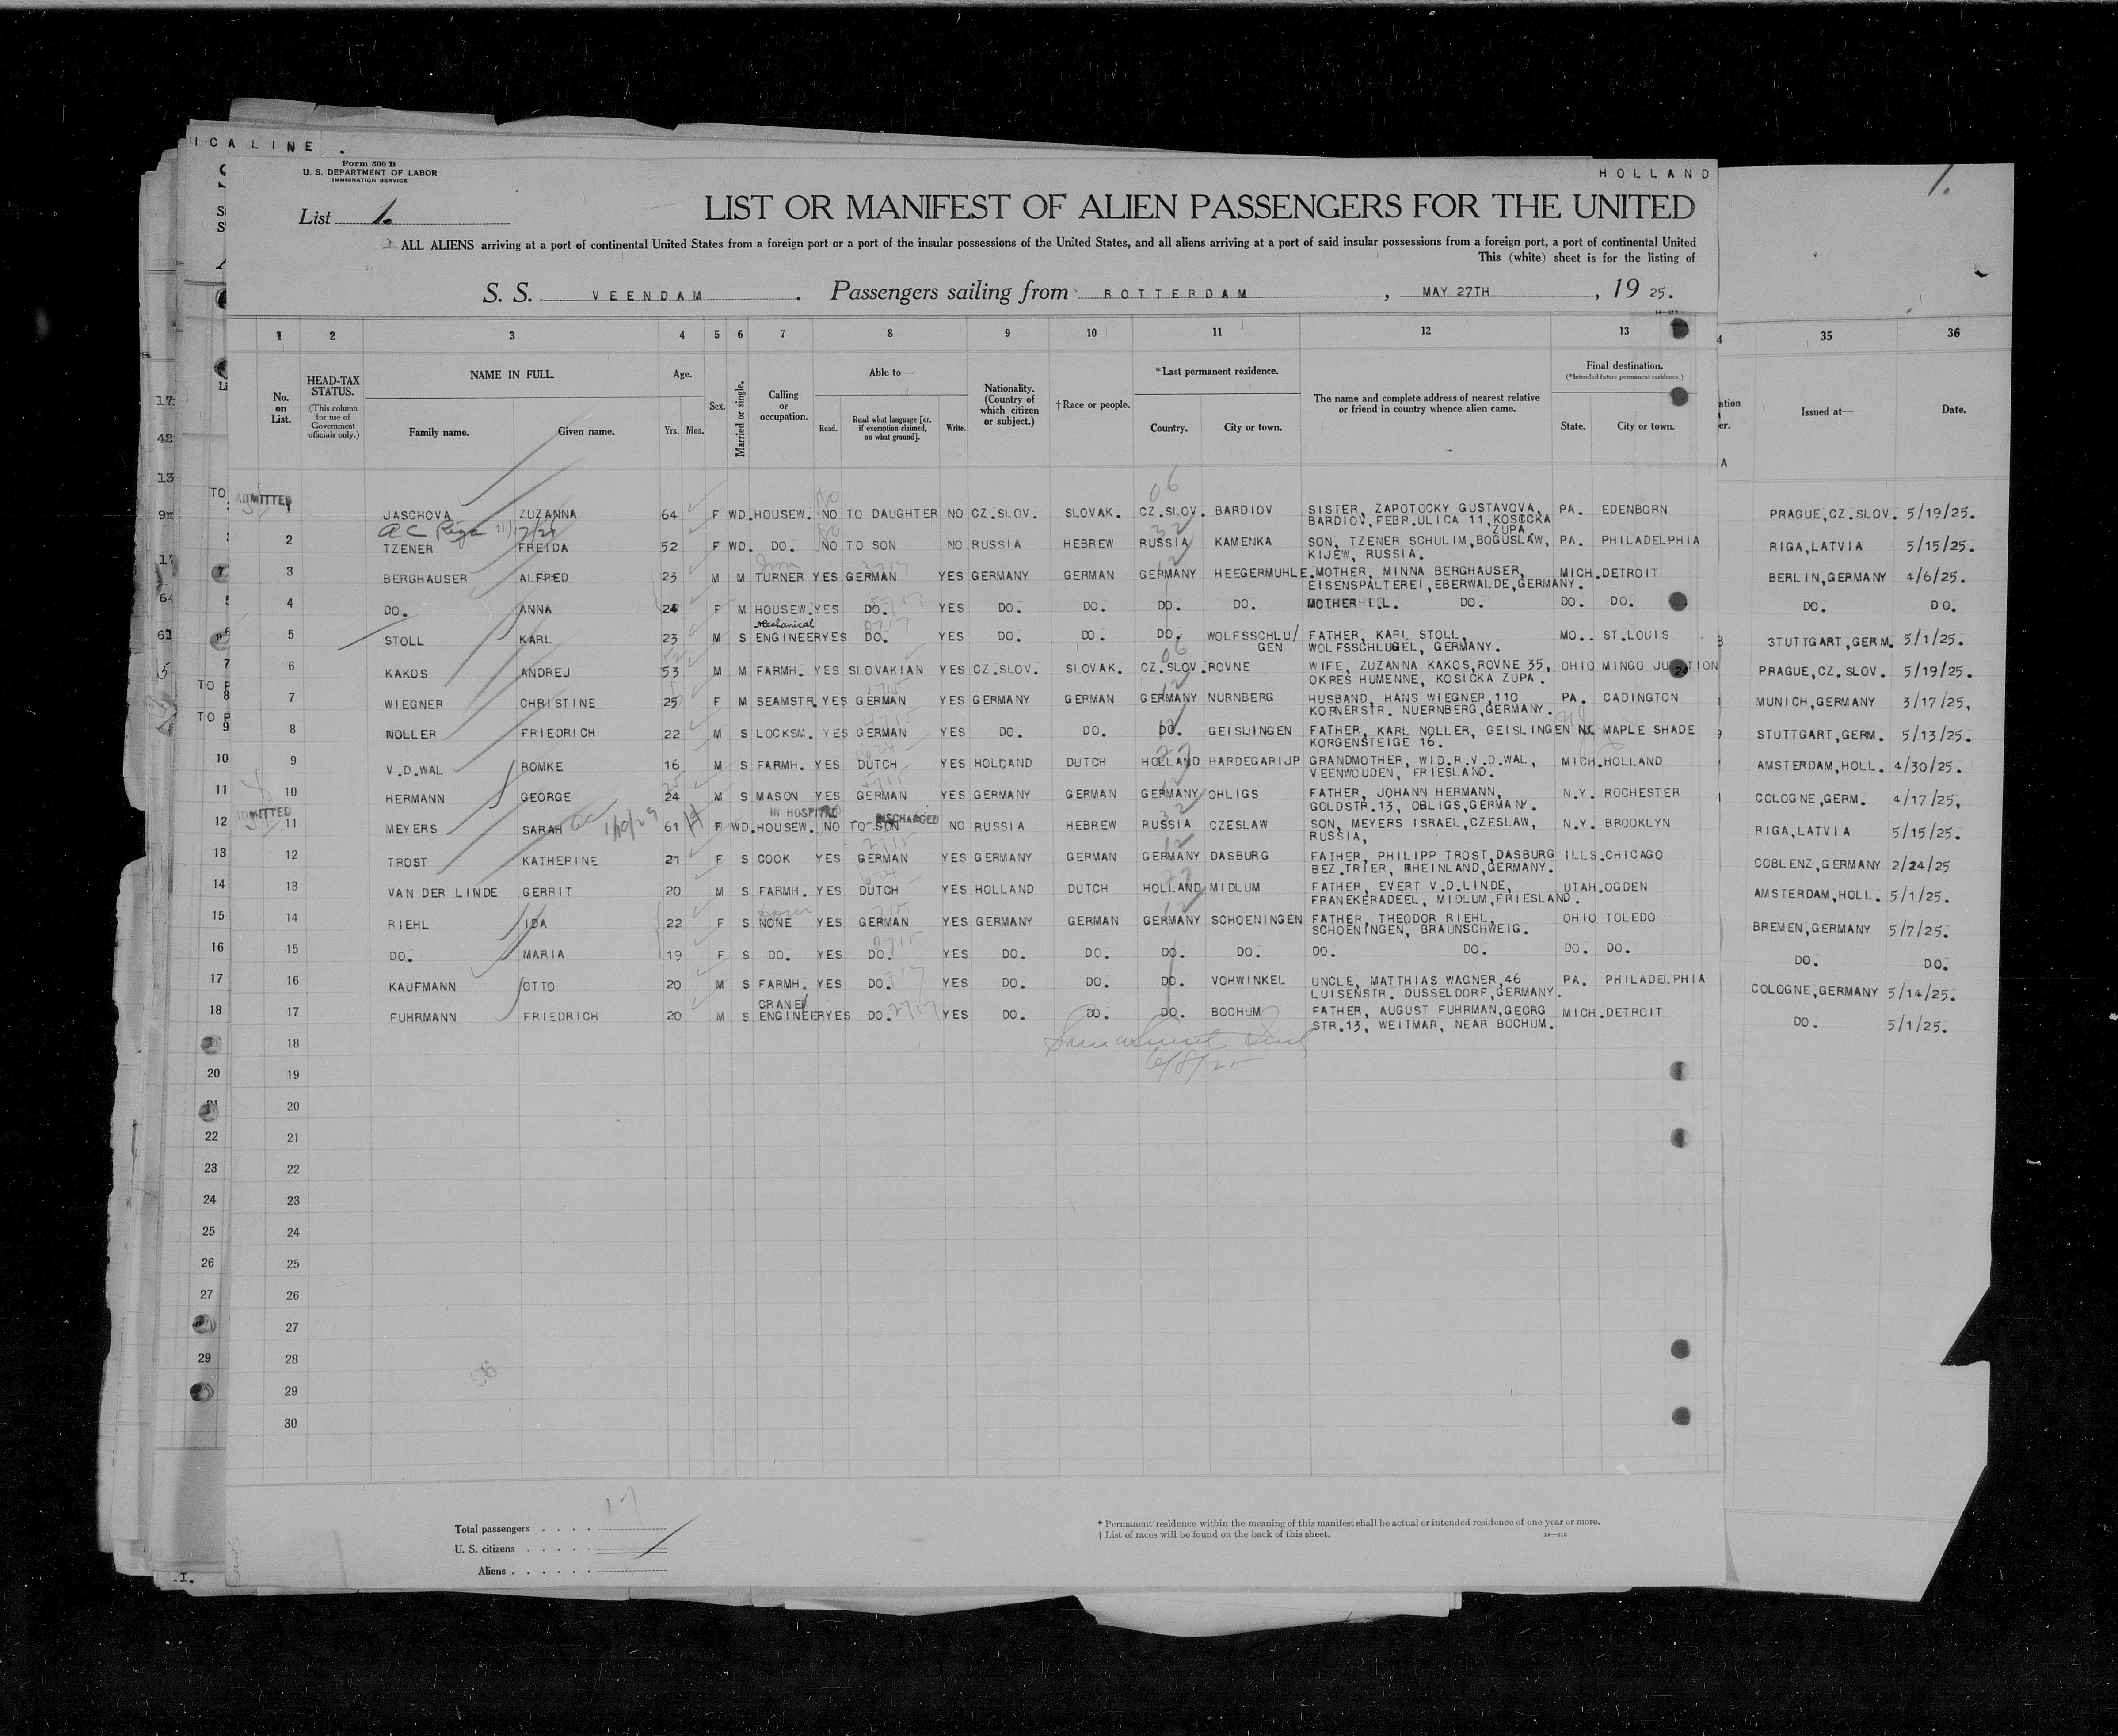 ICA LINE .
Form 500 B
U. S. DEPARTMENT OF LABOR
IMMIGRATION SERVICE
HOLLAND
1.
List 1.
LIST OR MANIFEST OF ALIEN PASSENGERS FOR THE UNITED
ALL ALIENS arriving at a port of continental United States from a foreign port or a port of the insular possessions of the United States, and all aliens arriving at a port of said insular possessions from a foreign port, a port of continental United
This (white) sheet is for the listing of
S. S. VEENDAM . Passengers sailing from ROTTERDAM , MAY 27TH , 19 25.
1 2 3 4 5 6 7 8 9 10 11 12 13 35 36
No. on List.
HEAD-TAX STATUS.
(This column for use of Government officials only.)
NAME IN FULL.
Family name. Given name.
Age.
Yrs. Mos.
Sex.
Married or single.
Calling or occupation.
Able to—
Read. Read what language [or, if exemption claimed, on what ground]. Write.
Nationality. (Country of which citizen or subject.)
†Race or people.
*Last permanent residence.
Country. City or town.
The name and complete address of nearest relative or friend in country whence alien came.
Final destination.
(*Intended future permanent residence.)
State. City or town.
Issued at— Date.
ADMITTED
1 JASCHOVA ZUZANNA 64 F WD. HOUSEW. NO TO DAUGHTER NO CZ.SLOV. SLOVAK. CZ.SLOV. BARDIOV SISTER, ZAPOTOCKY GUSTAVOVA, PA. EDENBORN PRAGUE,CZ.SLOV. 5/19/25.
BARDIOV,FEBR.ULICA 11,KOSICKA ZUPA
AC Riga 11/17/28
2 TZENER FREIDA 52 F WD. DO. NO TO SON NO RUSSIA HEBREW RUSSIA KAMENKA SON, TZENER SCHULIM,BOGUSLAW, PA. PHILADELPHIA RIGA,LATVIA 5/15/25.
KIJEW, RUSSIA.
3 BERGHAUSER ALFRED 23 M M TURNER YES GERMAN YES GERMANY GERMAN GERMANY HEEGERMUHLE. MOTHER, MINNA BERGHAUSER, MICH. DETROIT BERLIN,GERMANY 4/6/25.
EISENSPALTEREI,EBERWALDE,GERMANY.
4 DO. ANNA 24 F M HOUSEW. YES DO. YES DO. DO. DO. DO. MOTHER I.L. DO. DO. DO. DO. DO.
Mechanical
5 STOLL KARL 23 M S ENGINEER YES DO. YES DO. DO. DO. WOLFSSCHLU/GEN FATHER, KARL STOLL, MO.. ST.LOUIS STUTTGART,GERM. 5/1/25.
WOLFSSCHLUGEL, GERMANY.
6 KAKOS ANDREJ 53 M M FARMH. YES SLOVAKIAN YES CZ.SLOV. SLOVAK. CZ.SLOV. ROVNE WIFE, ZUZANNA KAKOS,ROVNE 35, OHIO MINGO JUNCTION PRAGUE,CZ.SLOV. 5/19/25.
OKRES HUMENNE, KOSICKA ZUPA.
7 WIEGNER CHRISTINE 25 F M SEAMSTR. YES GERMAN YES GERMANY GERMAN GERMANY NURNBERG HUSBAND, HANS WIEGNER,110 PA. CADINGTON MUNICH,GERMANY 3/17/25,
KORNERSTR. NUERNBERG,GERMANY.
8 NOLLER FRIEDRICH 22 M S LOCKSM. YES GERMAN YES DO. DO. DO. GEISLINGEN FATHER, KARL NOLLER, GEISLINGEN MAPLE SHADE STUTTGART,GERM. 5/13/25.
KORGENSTEIGE 16.
9 V.D.WAL ROMKE 16 M S FARMH. YES DUTCH YES HOLDAND DUTCH HOLLAND HARDEGARIJP GRANDMOTHER, WID.R.V.D.WAL, MICH. HOLLAND AMSTERDAM,HOLL. 4/30/25.
VEENWOUDEN, FRIESLAND.
10 HERMANN GEORGE 24 M S MASON YES GERMAN YES GERMANY GERMAN GERMANY OHLIGS FATHER, JOHANN HERMANN, N.Y. ROCHESTER COLOGNE,GERM. 4/17/25,
GOLDSTR.13, OBLIGS,GERMANY.
ADMITTED
IN HOSPITAL DISCHARGED
11 MEYERS SARAH 61 F WD. HOUSEW. NO TO SON NO RUSSIA HEBREW RUSSIA CZESLAW SON, MEYERS ISRAEL,CZESLAW, N.Y. BROOKLYN RIGA,LATVIA 5/15/25.
RUSSIA,
12 TROST KATHERINE 21 F S COOK YES GERMAN YES GERMANY GERMAN GERMANY DASBURG FATHER, PHILIPP TROST,DASBURG ILLS. CHICAGO COBLENZ,GERMANY 2/24/25
BEZ.TRIER, RHEINLAND,GERMANY.
13 VAN DER LINDE GERRIT 20 M S FARMH. YES DUTCH YES HOLLAND DUTCH HOLLAND MIDLUM FATHER, EVERT V.D.LINDE, UTAH. OGDEN AMSTERDAM,HOLL. 5/1/25.
FRANEKERADEEL, MIDLUM,FRIESLAND.
14 RIEHL IDA 22 F S NONE YES GERMAN YES GERMANY GERMAN GERMANY SCHOENINGEN FATHER, THEODOR RIEHL, OHIO TOLEDO BREMEN,GERMANY 5/7/25.
SCHOENINGEN, BRAUNSCHWEIG.
15 DO. MARIA 19 F S DO. YES DO. YES DO. DO. DO. DO. DO. DO. DO. DO. DO. DO.
16 KAUFMANN OTTO 20 M S FARMH. YES DO. YES DO. DO. DO. VOHWINKEL UNCLE, MATTHIAS WAGNER,46 PA. PHILADELPHIA COLOGNE,GERMANY 5/14/25.
LUISENSTR. DUSSELDORF,GERMANY.
CRANE
17 FUHRMANN FRIEDRICH 20 M S ENGINEER YES DO. YES DO. DO. DO. BOCHUM FATHER, AUGUST FUHRMAN,GEORG MICH. DETROIT DO. 5/1/25.
STR.13, WEITMAR, NEAR BOCHUM.
18
6/8/25
19
20
21
22
23
24
25
26
27
28
29
30
17
Total passengers . . . .
U. S. citizens . . . . .
Aliens . . . . . .
* Permanent residence within the meaning of this manifest shall be actual or intended residence of one year or more.
† List of races will be found on the back of this sheet.